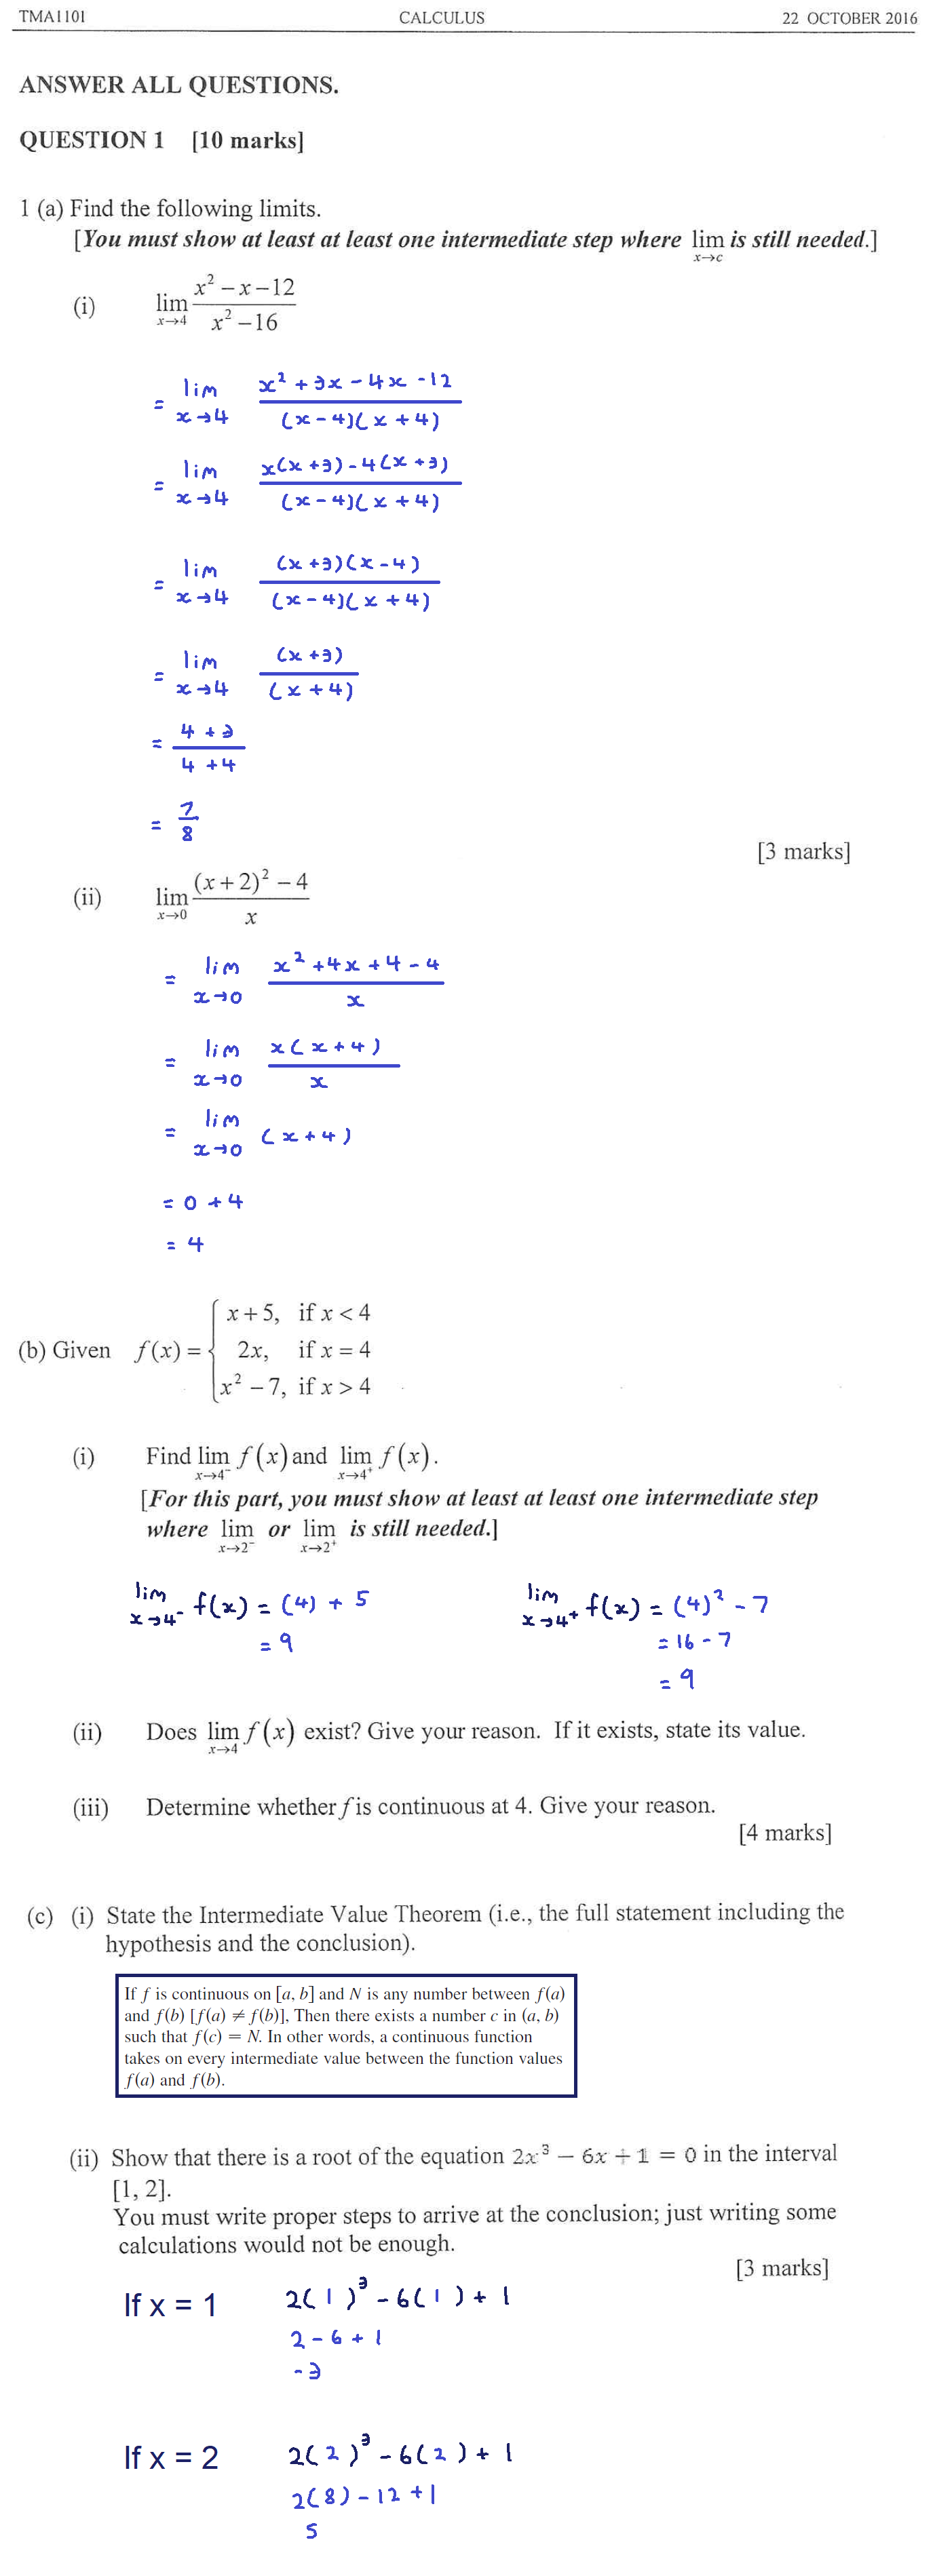 TMA1101 CALCULUS 22 OCTOBER 2016
ANSWER ALL QUESTIONS.
QUESTION 1 [10 marks]
1 (a) Find the following limits.
[You must show at least at least one intermediate step where lim x→c is still needed.]
(i) lim x→4 (x² − x − 12)/(x² − 16)
= lim x→4 (x² + 3x − 4x − 12)/((x − 4)(x + 4))
= lim x→4 (x(x + 3) − 4(x + 3))/((x − 4)(x + 4))
= lim x→4 ((x + 3)(x − 4))/((x − 4)(x + 4))
= lim x→4 (x + 3)/(x + 4)
= (4 + 3)/(4 + 4)
= 7/8
[3 marks]
(ii) lim x→0 ((x + 2)² − 4)/x
= lim x→0 (x² + 4x + 4 − 4)/x
= lim x→0 (x(x + 4))/x
= lim x→0 (x + 4)
= 0 + 4
= 4
(b) Given f(x) = { x + 5, if x < 4
2x, if x = 4
x² − 7, if x > 4
(i) Find lim x→4⁻ f(x) and lim x→4⁺ f(x).
[For this part, you must show at least at least one intermediate step
where lim x→2⁻ or lim x→2⁺ is still needed.]
lim x→4⁻ f(x) = (4) + 5 lim x→4⁺ f(x) = (4)² − 7
= 9 = 16 − 7
= 9
(ii) Does lim x→4 f(x) exist? Give your reason. If it exists, state its value.
(iii) Determine whether f is continuous at 4. Give your reason.
[4 marks]
(c) (i) State the Intermediate Value Theorem (i.e., the full statement including the
hypothesis and the conclusion).
If f is continuous on [a, b] and N is any number between f(a)
and f(b) [f(a) ≠ f(b)], Then there exists a number c in (a, b)
such that f(c) = N. In other words, a continuous function
takes on every intermediate value between the function values
f(a) and f(b).
(ii) Show that there is a root of the equation 2x³ − 6x + 1 = 0 in the interval
[1, 2].
You must write proper steps to arrive at the conclusion; just writing some
calculations would not be enough.
[3 marks]
If x = 1 2(1)³ − 6(1) + 1
2 − 6 + 1
−3
If x = 2 2(2)³ − 6(2) + 1
2(8) − 12 + 1
5